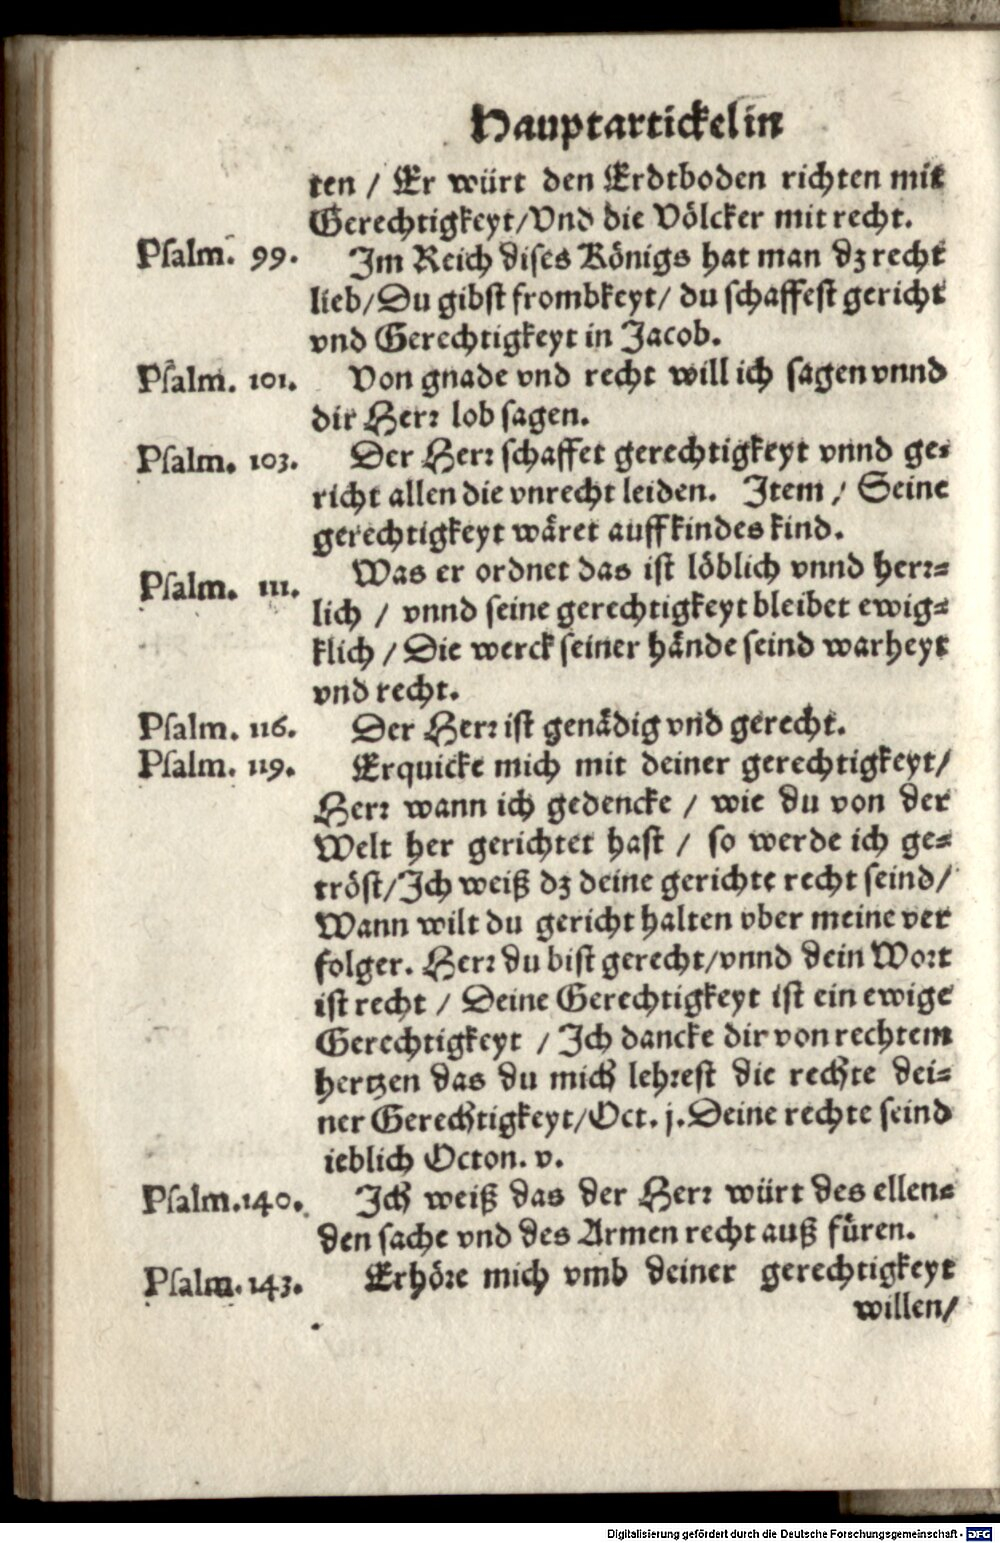 Hauptartickel in
ten / Er würt den Erdtboden richten mit
Gerechtigkeyt/Vnd die Völcker mit recht.
Psalm. 99. Im Reich dises Königs hat man dz recht
lieb/Du gibst frombkeyt/ du schaffest gericht
vnd Gerechtigkeyt in Jacob.
Psalm. 101. Von gnade vnd recht will ich sagen vnnd
dir Herr lob sagen.
Psalm. 103. Der Herr schaffet gerechtigkeyt vnnd ge-
richt allen die vnrecht leiden. Item / Seine
gerechtigkeyt wäret auff kindes kind.
Psalm. 111. Was er ordnet das ist löblich vnnd herr-
lich / vnnd seine gerechtigkeyt bleibet ewig-
klich / Die werck seiner hände seind warheyt
vnd recht.
Psalm. 116. Der Herr ist genädig vnd gerecht.
Psalm. 119. Erquicke mich mit deiner gerechtigkeyt/
Herr wann ich gedencke / wie du von der
Welt her gerichtet hast / so werde ich ge-
tröst/Ich weiß dz deine gerichte recht seind/
Wann wilt du gericht halten vber meine ver
folger. Herr du bist gerecht/vnnd dein Wort
ist recht / Deine Gerechtigkeyt ist ein ewige
Gerechtigkeyt / Ich dancke dir von rechtem
hertzen das du mich lehrest die rechte dei-
ner Gerechtigkeyt/Oct. j. Deine rechte seind
ieblich Octon. v.
Psalm. 140. Ich weiß das der Herr würt des ellen-
den sache vnd des Armen recht auß füren.
Psalm. 143. Erhöre mich vmb deiner gerechtigkeyt
willen/
Digitalisierung gefördert durch die Deutsche Forschungsgemeinschaft - DFG